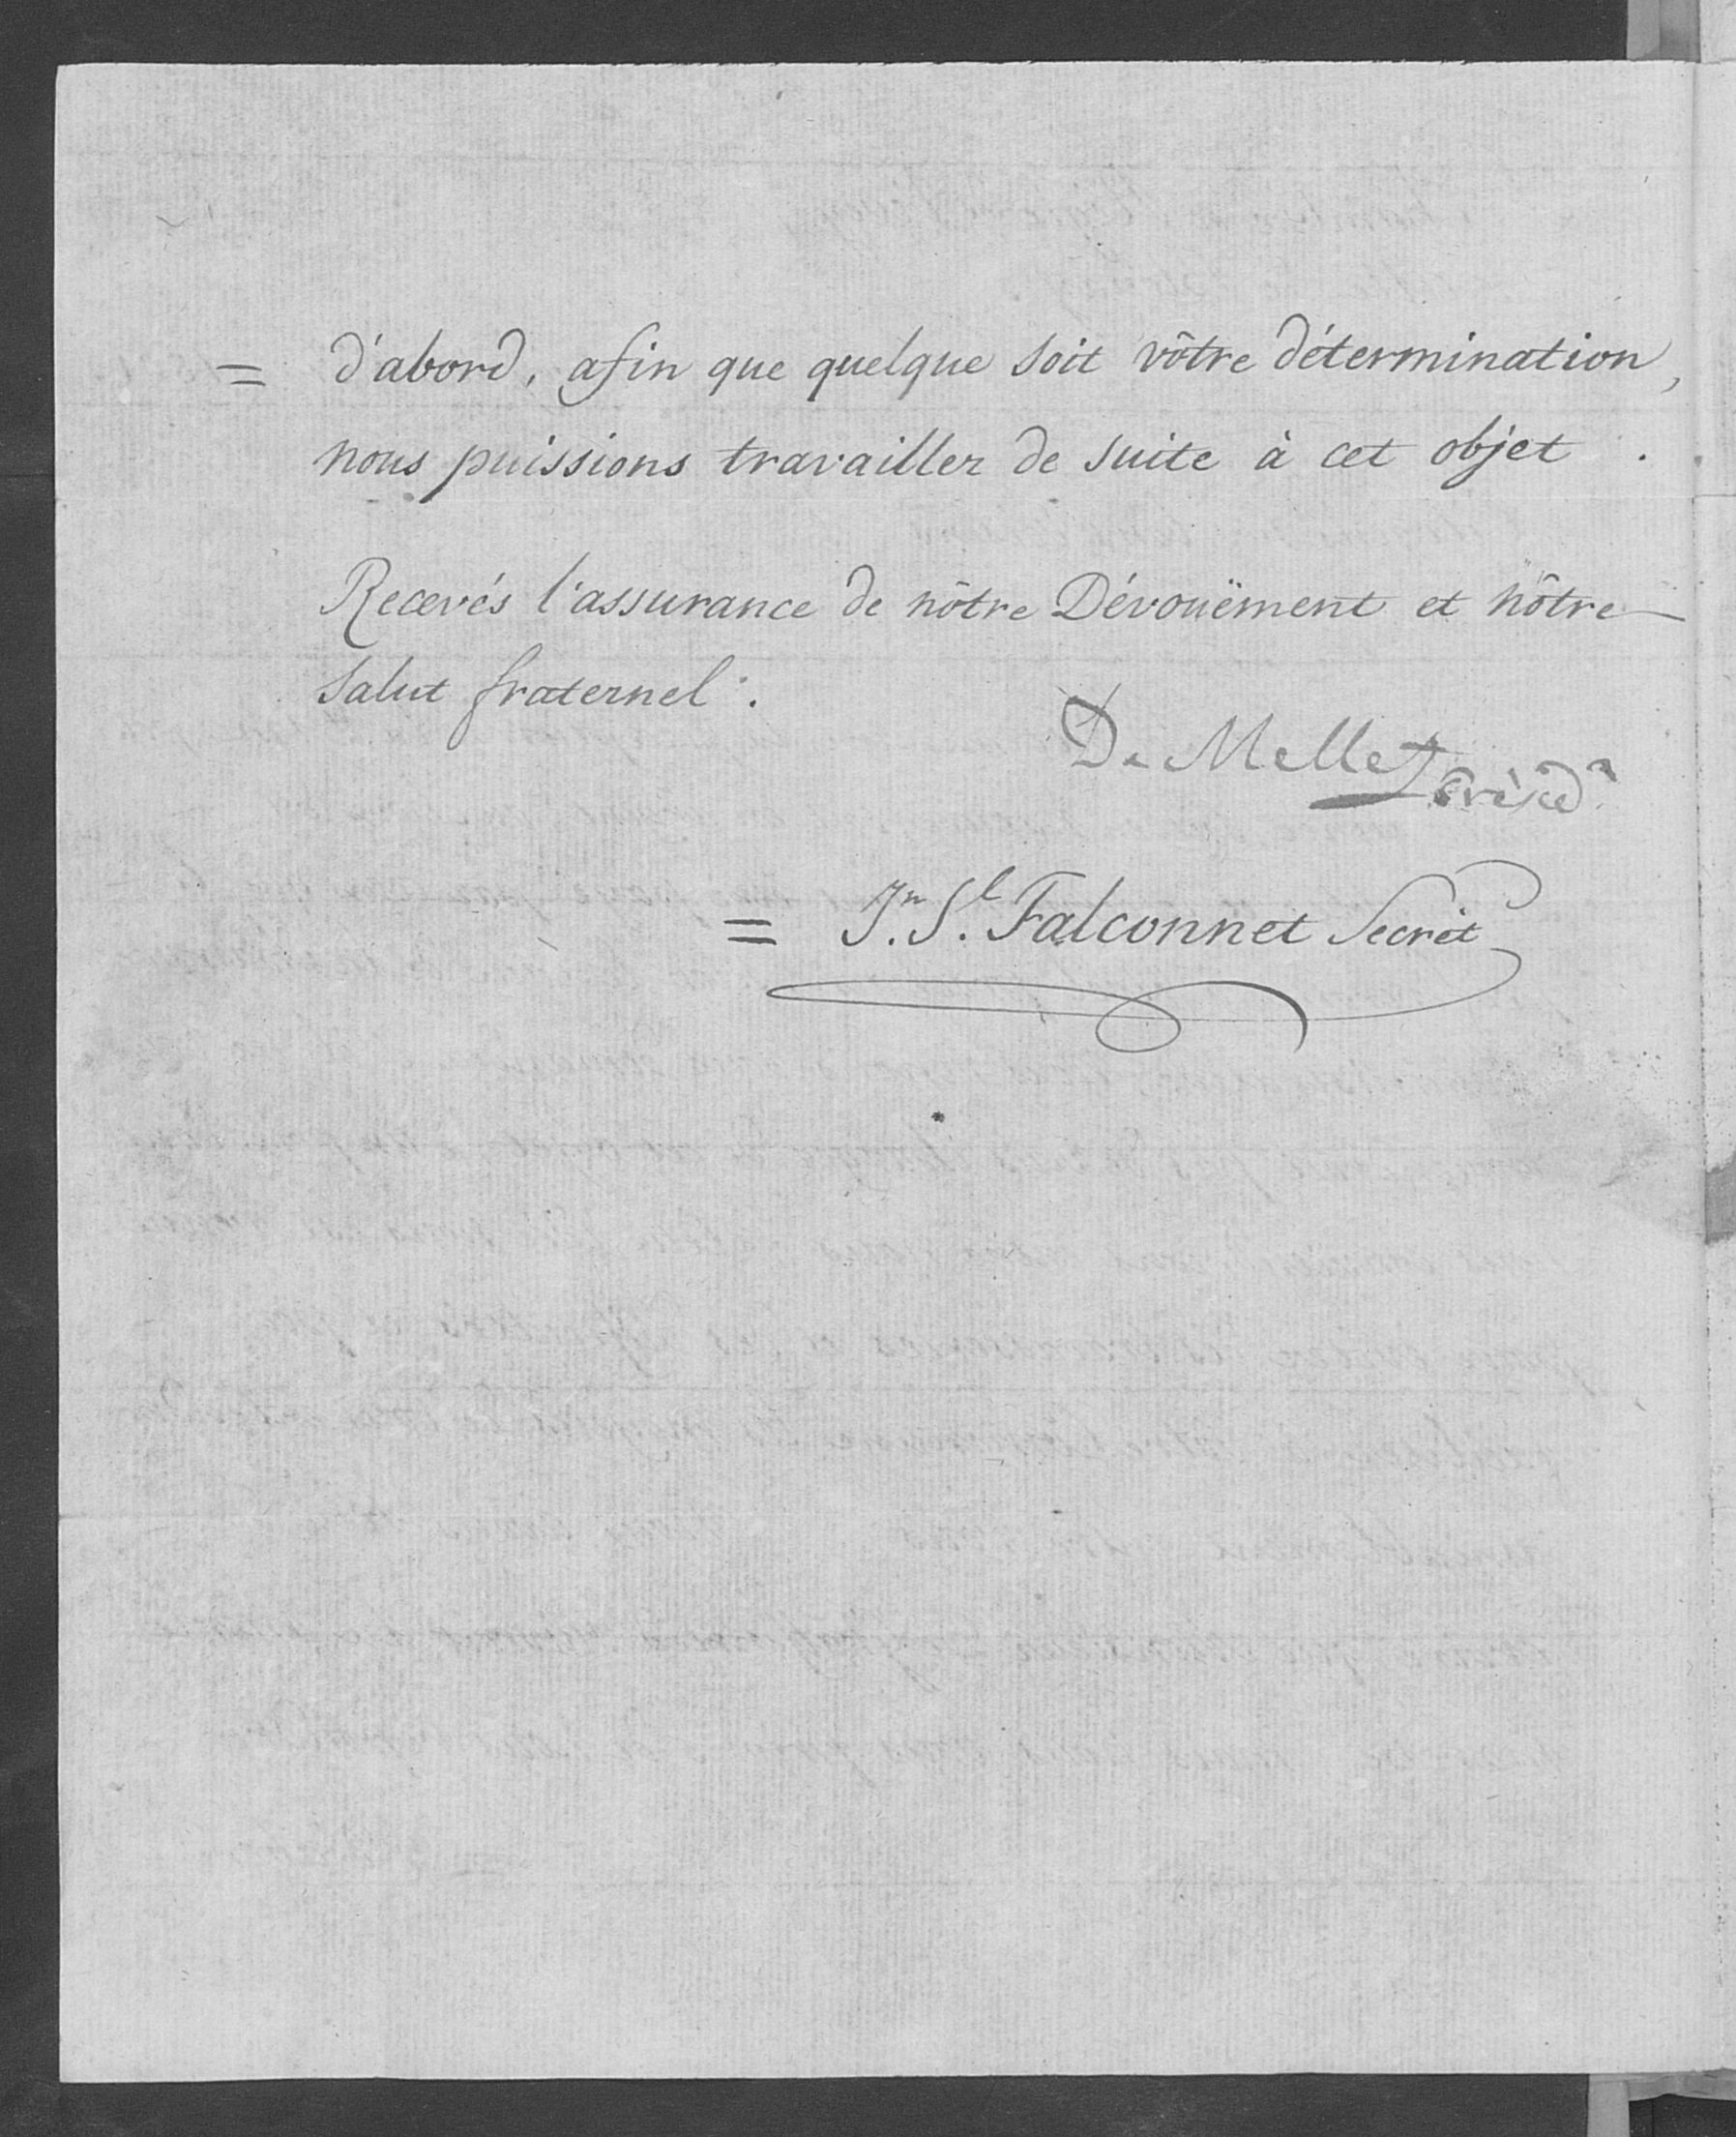 = d'abord, afin que quelque soit vôtre détermination,
nous puissions travailler de suite à cet objet .
Recevés l'assurance de nôtre Dévouëment et nôtre
Salut fraternel.
De Mellet Présid.
= Jn. Sl. Falconnet Secrét